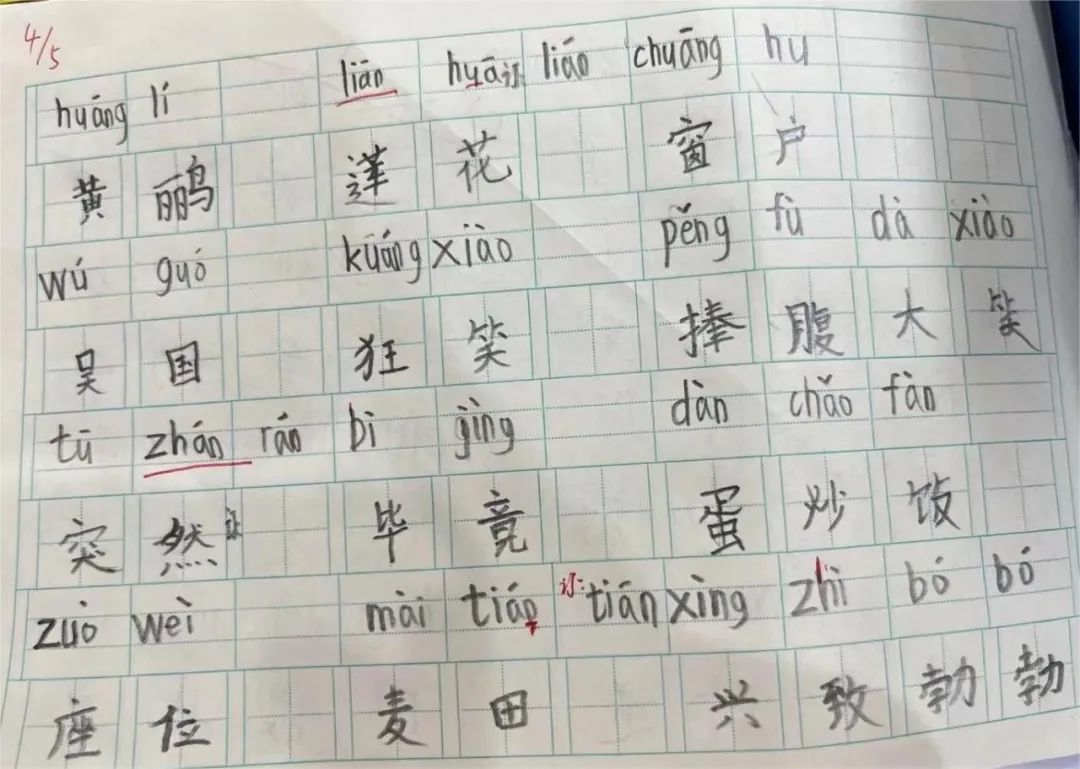 4/5
huáng lí liān huā订 lián chuāng hu
黄鹂 莲花 窗户
wú guó kuáng xiào pěng fù dà xiào
吴国 狂笑 捧腹大笑
tū zhán rán bì jìng dàn chǎo fàn
突然订 毕竟 蛋炒饭
zuò wèi mài tián 订:tián xìng zhì bó bó
座位 麦田 兴致勃勃